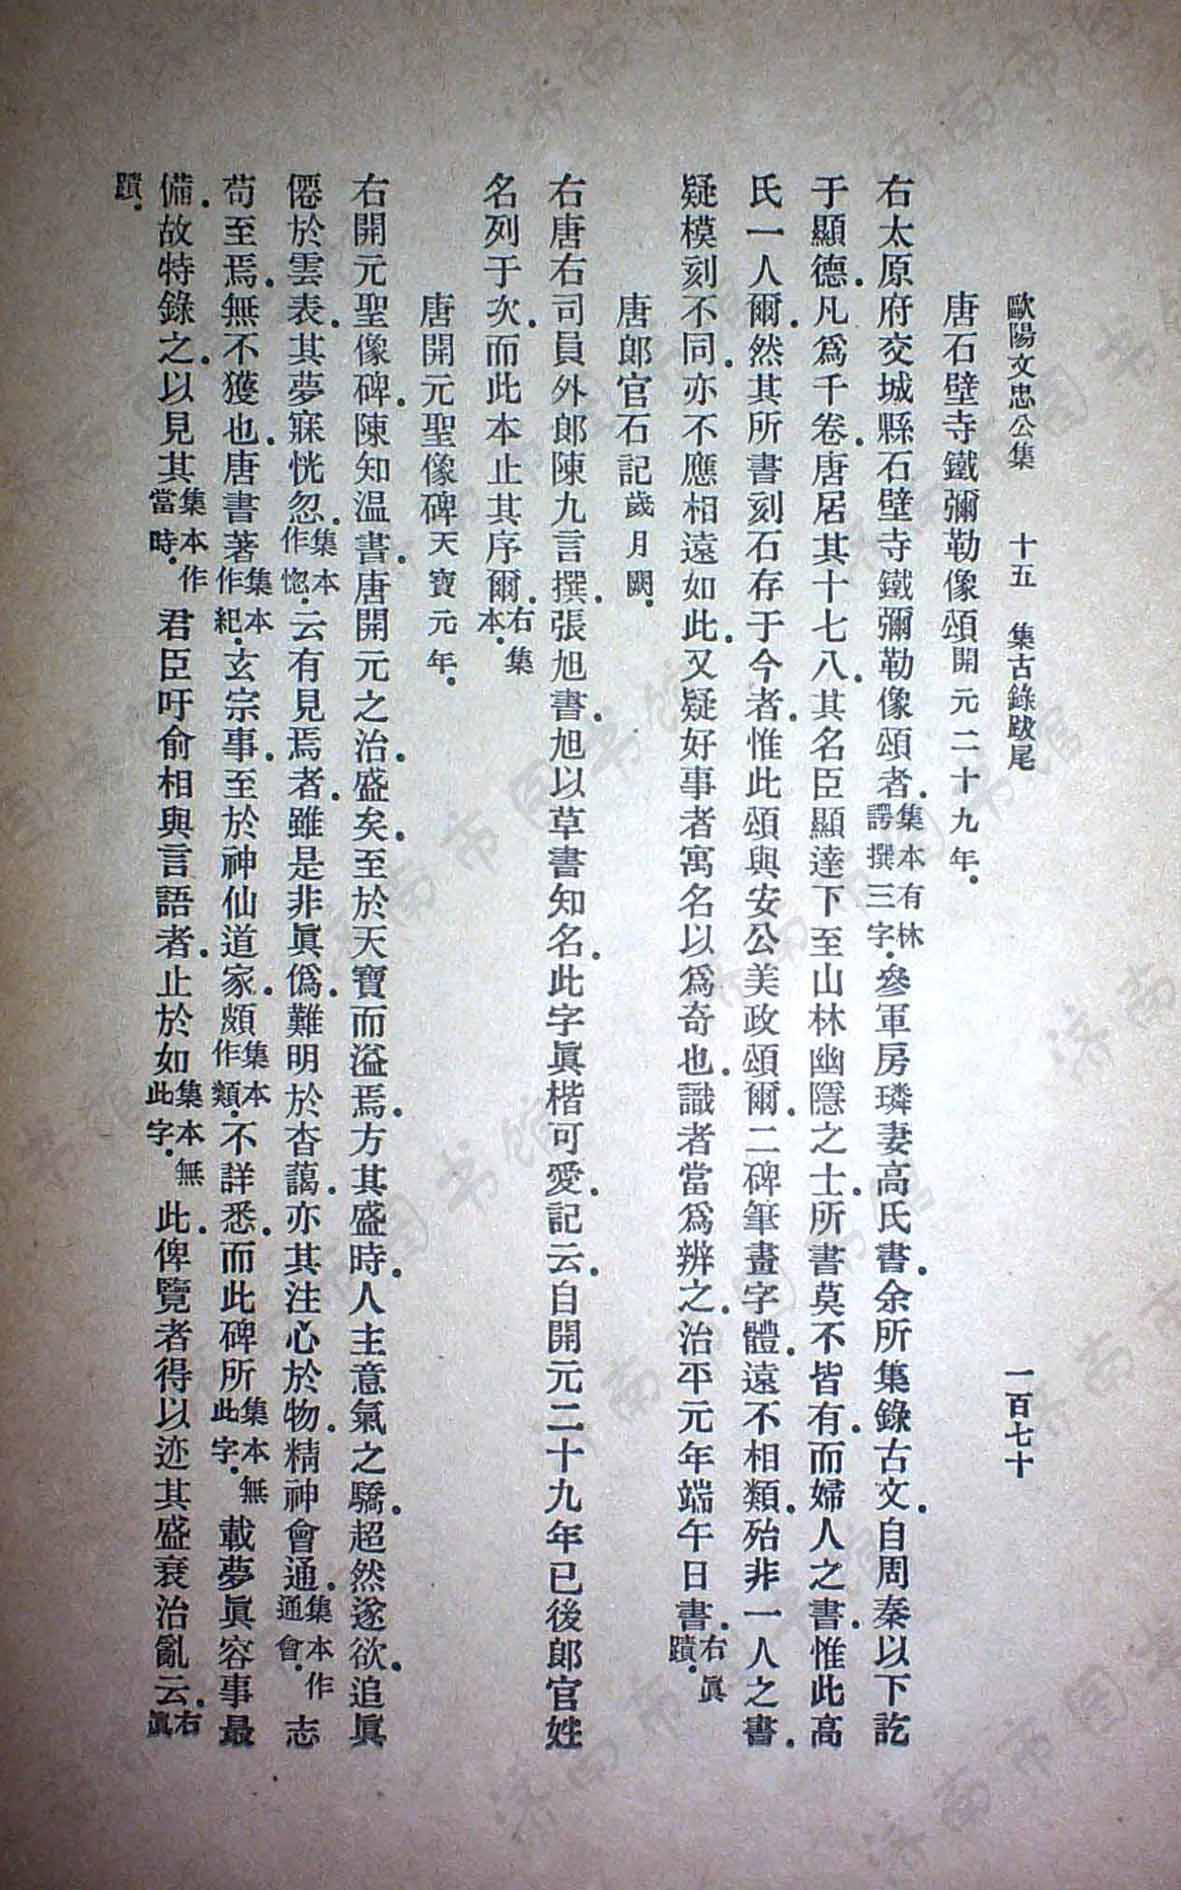 歐陽文忠公集　十五　集古錄跋尾　一百七十
唐石壁寺鐵彌勒像頌開元二十九年．
右太原府交城縣石壁寺鐵彌勒像頌者．集本有林諤撰三字．參軍房璘妻高氏書．余所集錄古文．自周秦以下訖
于顯德．凡爲千卷．唐居其十七八．其名臣顯達下至山林幽隱之士．所書莫不皆有．而婦人之書．惟此高
氏一人爾．然其所書刻石存于今者．惟此頌與安公美政頌爾．二碑筆畫字體．遠不相類．殆非一人之書．
疑模刻不同．亦不應相遠如此．又疑好事者寓名以爲奇也．識者當爲辨之．治平元年端午日書．右眞蹟．
唐郎官石記歲月闕．
右唐右司員外郎陳九言撰．張旭書．旭以草書知名．此字眞楷可愛．記云．自開元二十九年已後郎官姓
名列于次．而此本止其序爾．右集本．
唐開元聖像碑天寶元年．
右開元聖像碑．陳知溫書．唐開元之治盛矣．至於天寶而溢焉．方其盛時．人主意氣之驕．超然遂欲．追眞
僊於雲表．其夢寐恍忽．集本作惚．云有見焉者．雖是非眞僞．難明於杳藹．亦其注心於物．精神會通．集本作通會．志
苟至焉．無不獲也．唐書著集本作紀．玄宗事．至於神仙道家．頗集本作類．不詳悉．而此碑所集本無此字．載夢眞容事最
備．故特錄之．以見其集本作當時．君臣吁俞相與言語者．止於如集本無此字．此．俾覽者得以迹其盛衰治亂云．右眞
蹟．